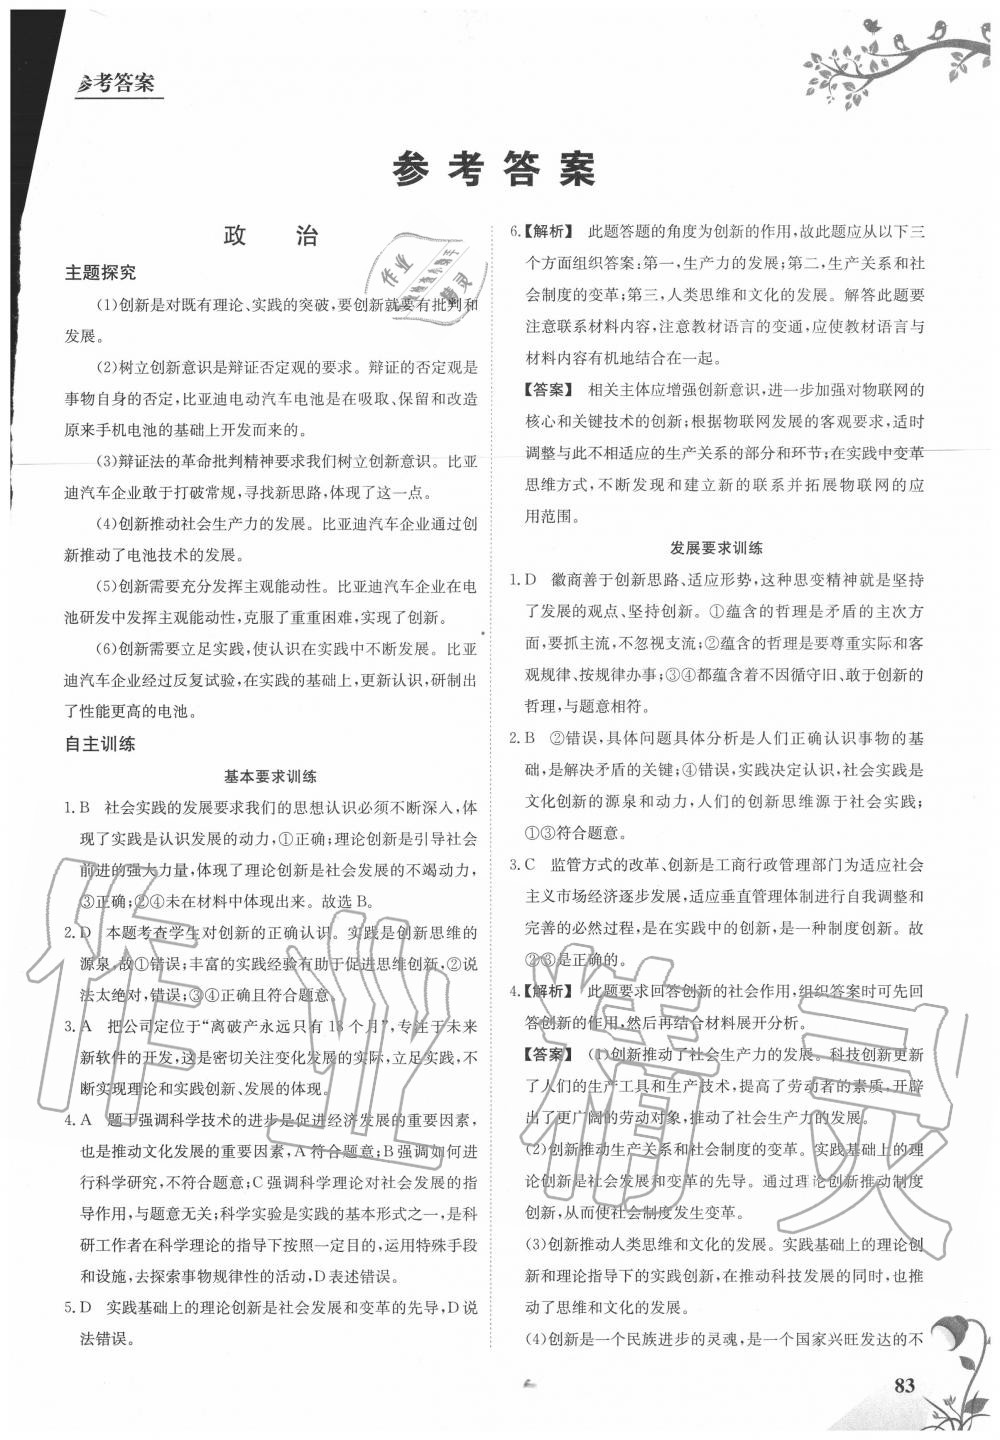 参考答案
参考答案
政 治
主题探究
(1)创新是对既有理论、实践的突破,要创新就要有批判和
发展。
(2)树立创新意识是辩证否定观的要求。辩证的否定观是
事物自身的否定,比亚迪电动汽车电池是在吸取、保留和改造
原来手机电池的基础上开发而来的。
(3)辩证法的革命批判精神要求我们树立创新意识。比亚
迪汽车企业敢于打破常规,寻找新思路,体现了这一点。
(4)创新推动社会生产力的发展。比亚迪汽车企业通过创
新推动了电池技术的发展。
(5)创新需要充分发挥主观能动性。比亚迪汽车企业在电
池研发中发挥主观能动性,克服了重重困难,实现了创新。
(6)创新需要立足实践,使认识在实践中不断发展。比亚
迪汽车企业经过反复试验,在实践的基础上,更新认识,研制出
了性能更高的电池。
自主训练
基本要求训练
1. B 社会实践的发展要求我们的思想认识必须不断深入,体
现了实践是认识发展的动力,①正确;理论创新是引导社会
前进的强大力量,体现了理论创新是社会发展的不竭动力,
③正确;②④未在材料中体现出来。故选B。
2. D 本题考查学生对创新的正确认识。实践是创新思维的
源泉,故①错误;丰富的实践经验有助于促进思维创新,②说
法太绝对,错误;③④正确且符合题意。
3. A 把公司定位于“离破产永远只有18个月”,专注于未来
新软件的开发,这是密切关注变化发展的实际,立足实践,不
断实现理论和实践创新、发展的体现。
4. A 题干强调科学技术的进步是促进经济发展的重要因素,
也是推动文化发展的重要因素,A符合题意;B强调如何进
行科学研究,不符合题意;C强调科学理论对社会发展的指
导作用,与题意无关;科学实验是实践的基本形式之一,是科
研工作者在科学理论的指导下按照一定目的,运用特殊手段
和设施,去探索事物规律性的活动,D表述错误。
5. D 实践基础上的理论创新是社会发展和变革的先导,D说
法错误。
6.【解析】 此题答题的角度为创新的作用,故此题应从以下三
个方面组织答案:第一,生产力的发展;第二,生产关系和社
会制度的变革;第三,人类思维和文化的发展。解答此题要
注意联系材料内容,注意教材语言的变通,应使教材语言与
材料内容有机地结合在一起。
【答案】 相关主体应增强创新意识,进一步加强对物联网的
核心和关键技术的创新;根据物联网发展的客观要求,适时
调整与此不相适应的生产关系的部分和环节;在实践中变革
思维方式,不断发现和建立新的联系并拓展物联网的应
用范围。
发展要求训练
1. D 徽商善于创新思路、适应形势,这种思变精神就是坚持
了发展的观点、坚持创新。①蕴含的哲理是矛盾的主次方
面,要抓主流,不忽视支流;②蕴含的哲理是要尊重实际和客
观规律、按规律办事;③④都蕴含着不因循守旧、敢于创新的
哲理,与题意相符。
2. B ②错误,具体问题具体分析是人们正确认识事物的基
础,是解决矛盾的关键;④错误,实践决定认识,社会实践是
文化创新的源泉和动力,人们的创新思维源于社会实践;
①③符合题意。
3. C 监管方式的改革、创新是工商行政管理部门为适应社会
主义市场经济逐步发展,适应垂直管理体制进行自我调整和
完善的必然过程,是在实践中的创新,是一种制度创新。故
②③是正确的。
4.【解析】 此题要求回答创新的社会作用,组织答案时可先回
答创新的作用,然后再结合材料展开分析。
【答案】 (1)创新推动了社会生产力的发展。科技创新更新
了人们的生产工具和生产技术,提高了劳动者的素质,开辟
出了更广阔的劳动对象,推动了社会生产力的发展。
(2)创新推动生产关系和社会制度的变革。实践基础上的理
论创新是社会发展和变革的先导。通过理论创新推动制度
创新,从而使社会制度发生变革。
(3)创新推动人类思维和文化的发展。实践基础上的理论创
新和理论指导下的实践创新,在推动科技发展的同时,也推
动了思维和文化的发展。
(4)创新是一个民族进步的灵魂,是一个国家兴旺发达的不
83
作业精灵